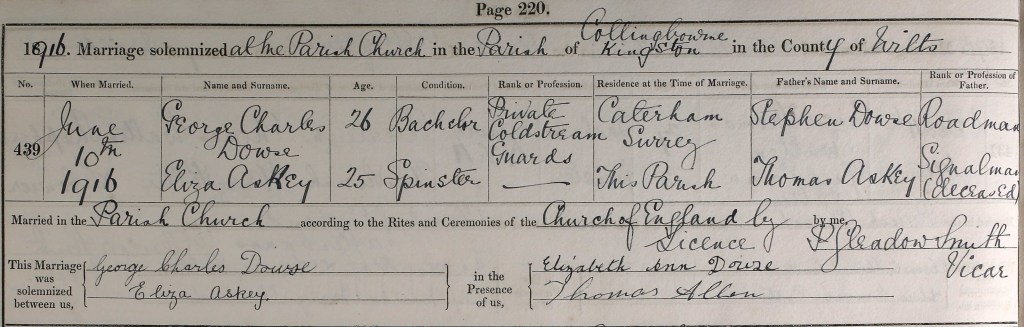 Page 220.
1916. Marriage solemnized at the Parish Church in the Parish of Collingbourne Kingston in the County of Wilts
No. When Married. Name and Surname. Age. Condition. Rank or Profession. Residence at the Time of Marriage. Father's Name and Surname. Rank or Profession of Father.
439 June 10th 1916 George Charles Dowse 26 Bachelor Private Coldstream Guards Caterham Surrey Stephen Dowse Roadman
Eliza Askey 25 Spinster — This Parish Thomas Askey Signalman (deceased)
Married in the Parish Church according to the Rites and Ceremonies of the Church of England by Licence by me, P Gleadow Smith Vicar
This Marriage was solemnized between us, George Charles Dowse in the Presence of us, Elizabeth Ann Dowse
Eliza Askey. Thomas Allen